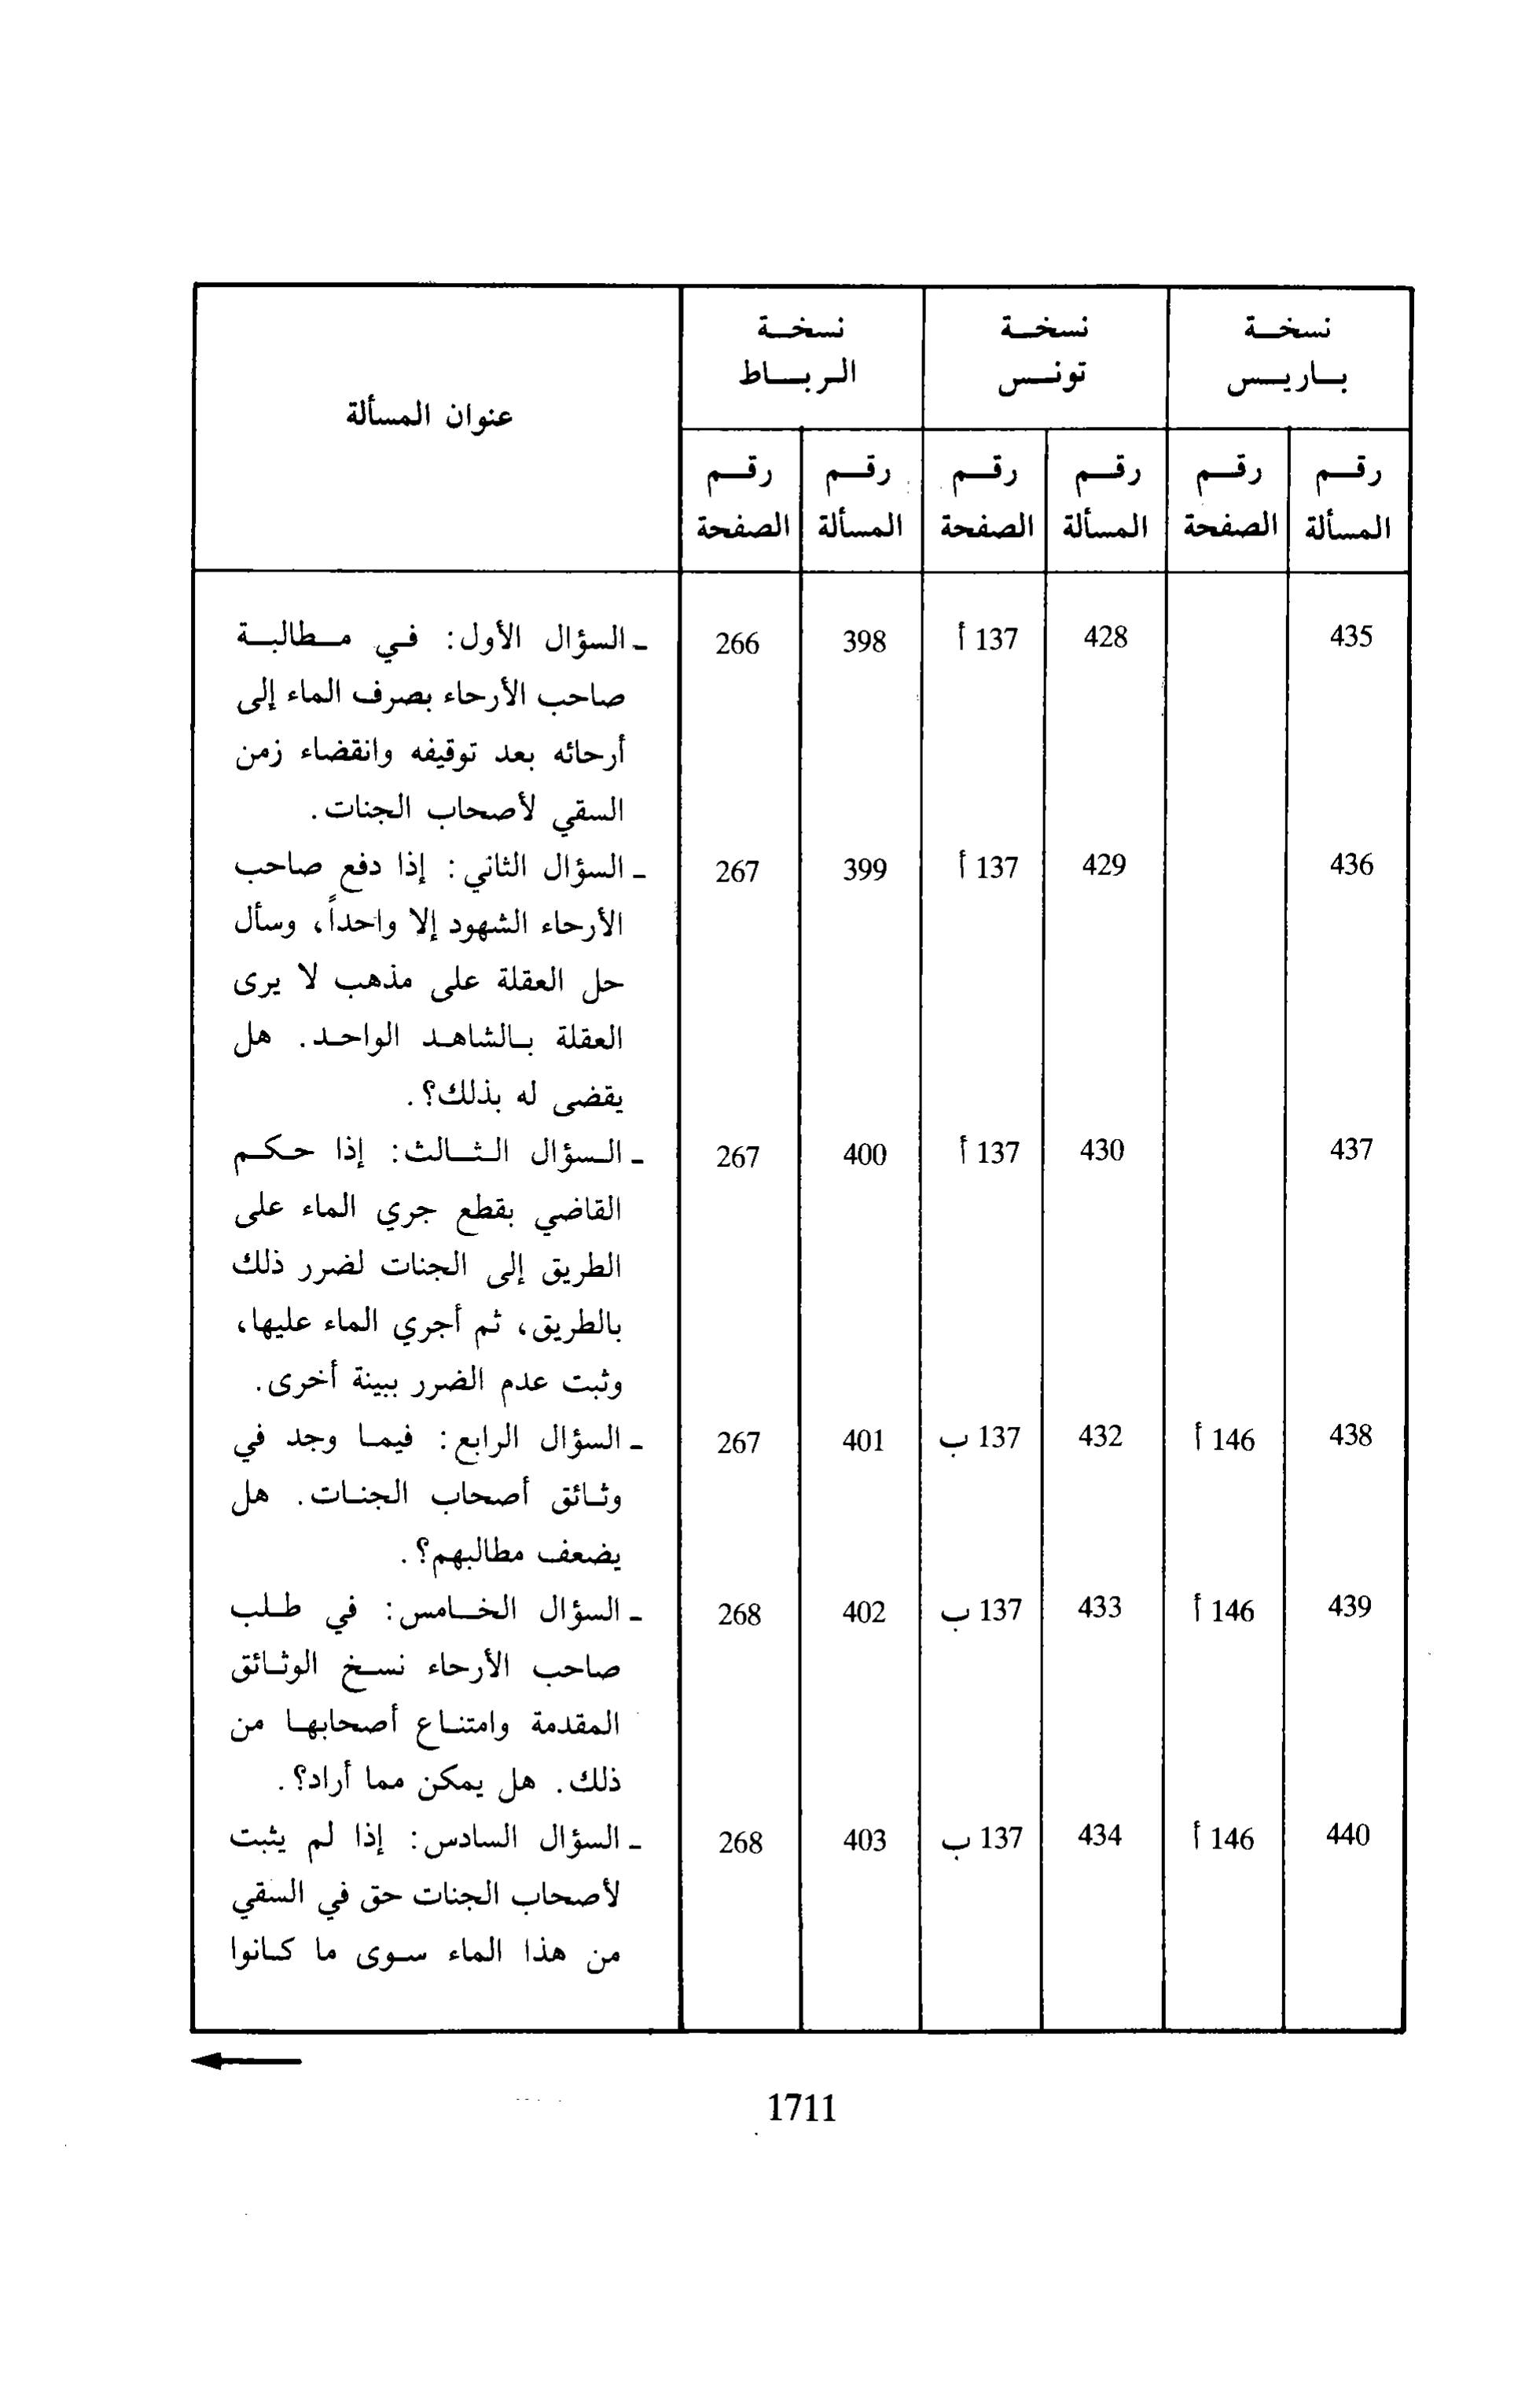 نسخة نسخة نسخة
باريس تونس الرباط
عنوان المسألة
رقم رقم رقم رقم رقم رقم
المسألة الصفحة المسألة الصفحة المسألة الصفحة
435 428 137 أ 398 266 ـ السؤال الأول: في مطالبة
صاحب الأرحاء بصرف الماء إلى
أرحائه بعد توقيفه وانقضاء زمن
السقي لأصحاب الجنات.
436 429 137 أ 399 267 ـ السؤال الثاني: إذا دفع صاحب
الأرحاء الشهود إلا واحداً، وسأل
حل العقلة على مذهب لا يرى
العقلة بالشاهد الواحد. هل
يقضى له بذلك؟.
437 430 137 أ 400 267 ـ السؤال الثالث: إذا حكم
القاضي بقطع جري الماء على
الطريق إلى الجنات لضرر ذلك
بالطريق، ثم أجري الماء عليها،
وثبت عدم الضرر ببينة أخرى.
438 146 أ 432 137 ب 401 267 ـ السؤال الرابع: فيما وجد في
وثائق أصحاب الجنات. هل
يضعف مطالبهم؟.
439 146 أ 433 137 ب 402 268 ـ السؤال الخامس: في طلب
صاحب الأرحاء نسخ الوثائق
المقدمة وامتناع أصحابها من
ذلك. هل يمكن مما أراد؟.
440 146 أ 434 137 ب 403 268 ـ السؤال السادس: إذا لم يثبت
لأصحاب الجنات حق في السقي
من هذا الماء سوى ما كانوا
1711